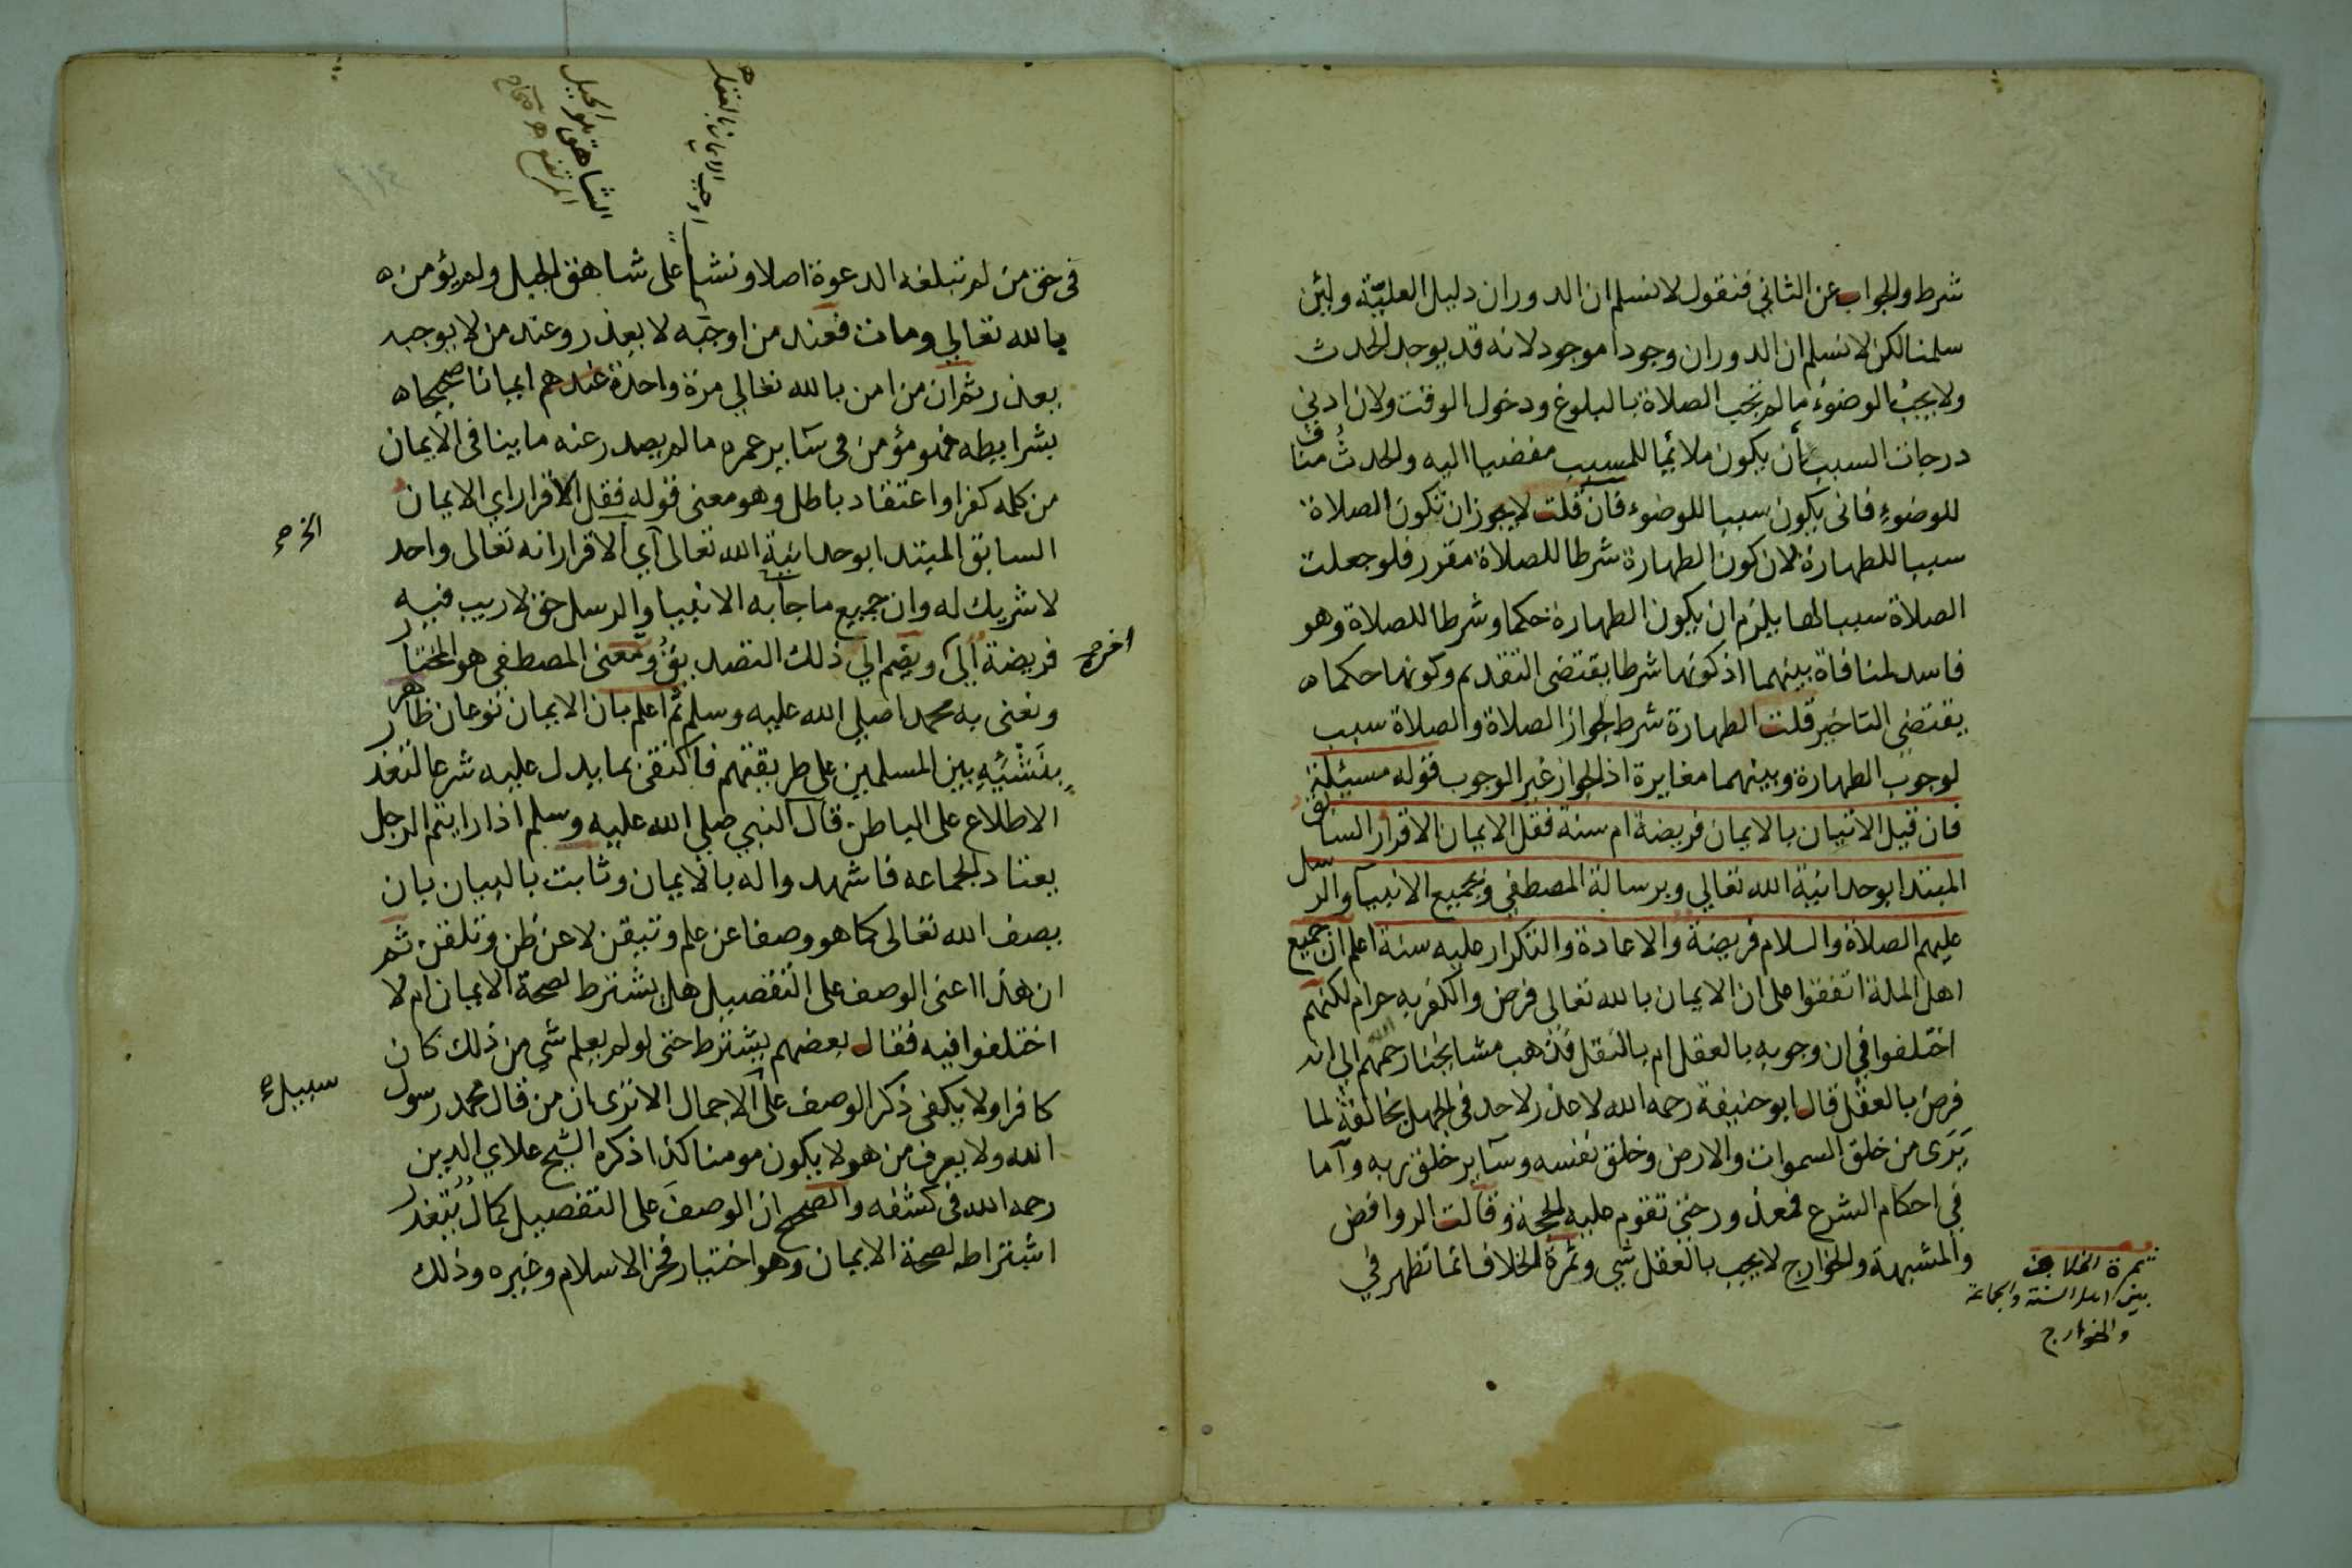 شرط والجواب عن الثاني فنقول لا نسلم ان الدوران دليل العليّة ولئن
سلمنا لكن لا نسلم ان الدوران وجودا موجود لانه قد يوجد الحدث
ولا يجب الوضوء ما لم تجب الصلاة بالبلوغ ودخول الوقت ولان ادني
درجات السبب أن يكون ملائما للمسبب مفضيا اليه والحدث مناف
للوضوء فانى يكون سببا للوضوء فان قلت لا يجوز ان تكون الصلاة
سببا للطهارة لان كون الطهارة شرطا للصلاة مقرر فلو جعلت
الصلاة سببا لها يلزم ان يكون الطهارة حكما وشرطا للصلاة وهو
فاسد لمنافاة بينهما اذ كونها شرطا يقتضى التقديم وكونها حكما ه
يقتضي التاخير قلت الطهارة شرط لجواز الصلاة والصلاة سبب
لوجوب الطهارة وبينهما مغايرة اذ الجواز غير الوجوب قوله مسئلة
فان قيل الاتيان بالايمان فريضة ام سنة فقل الايمان الاقرار السابق
المبتدا بوحدانية الله تعالي وبرسالة المصطفي وبجميع الانبيآ والرسل
عليهم الصلاة والسلام فريضة والاعادة والتكرار عليه سنة اعلم ان جميع
اهل الملة اتفقوا على ان الايمان بالله تعالى فرض والكفر به حرام لكنهم
اختلفوا في ان وجوبه بالعقل ام بالنقل فذهب مشايخنا رحمهم الله الي انه
فرض بالعقل قال ابو حنيفة رحمه الله لا عذر لاحد فى الجهل بخالقه لما
يَرَى من خلق السموات والارض وخلق نفسه وسآير خلق ربه وآما
في احكام الشرع فمعذور حتي تقوم عليه الحجة وقالت الروافض
والمشبهة والخوارج لا يجب بالعقل شي وثمرة الخلاف انما تظهر في
ثمرة الخلاف
بين اهل السنة والجماعة
والخوارج
اوجب الايمان بالعقل
الشاهق طويل الجبل
المرتفع
فى حق من لم تبلغه الدعوة اصلا ونشا على شاهق الجبل ولم يؤمن ه
بالله تعالي ومات فعند من اوجبه لا يعذر وعند من لا يوجبه
يعذر ثم ان من امن بالله تعالي مرة واحدة عندهم ايمانا صحيحا ه
بشرايطه فهو مؤمن فى سآير عمره ما لم يصدر عنه ما ينافى الايمان
من كلمه كفر او اعتقاد باطل وهو معنى قوله فقل الاقرار اي الايمان
السابق المبتدا بوحدانية الله تعالى آي الاقرار انه تعالى واحد
لا شريك له وان جميع ما جآ به الانبيا والرسل حق لا ريب فيه
فريضة آلى ويضم الي ذلك التصديق ومعنى المصطفي هو المختار
ونعنى به محمدا صلي الله عليه وسلم ثم اعلم بان الايمان نوعان ظاهر
بنَشْئِهِ بين المسلمين على طريقتهم فاكتفى بما يدل عليه شرعا لتعذر
الاطلاع على الباطن قال النبي صلي الله عليه وسلم اذا رايتم الرجل
يعتاد الجماعه فاشهدوا له بالايمان وثابت بالبيان بان
يصف الله تعالى كما هو وصفا عن علم وتيقن لا عن ظن وتلقن ثم
ان هذا اعنى الوصف على التفصيل هل يشترط لصحة الايمان ام لا
اختلفوا فيه فقال بعضهم يشترط حتى لو لم يعلم شي من ذلك كان
كافرا ولا يكفى ذكر الوصف على الاجمال الا ترى ان من قال محمد رسول
الله ولا يعرف من هو لا يكون مومنا كذا ذكره الشيخ علاي الدين
رحمه الله فى كشفه والصحيح ان الوصف على التفصيل كمال يتعذر
اشتراطه لصحة الايمان وهو اختيار فخر الاسلام وغيره وذلك